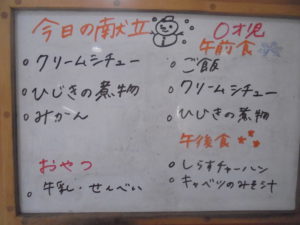 今日の献立
○クリームシチュー
○ひじきの煮物
○みかん
おやつ
○牛乳・せんべい
0才児
午前食
○ご飯
○クリームシチュー
○ひじきの煮物
午後食
○しらすチャーハン
○キャベツのみそ汁